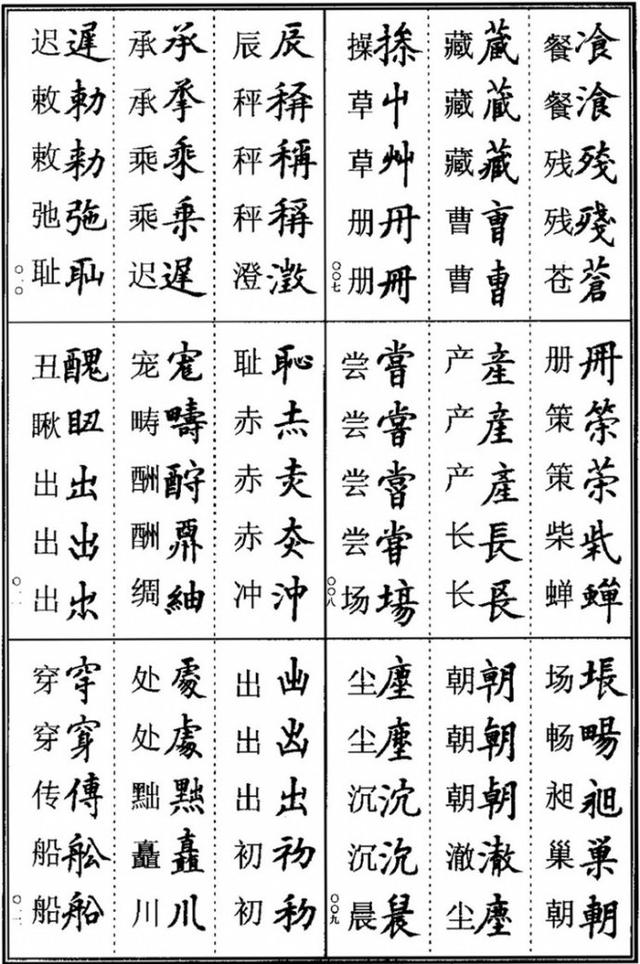 餐飡
餐湌
残殘
残殘
苍蒼
藏蔵
藏蔵
藏藏
曹曺
曹曺
操捺
草屮
草艸
册冊
册冊
〇〇七
册冊
策筞
策
柴
蝉蟬
产產
产產
产產
长長
长長
尝嘗
尝嘗
尝嘗
尝甞
场塲
〇〇八
场
畅畼
昶
巢巣
朝朝
朝朝
朝朝
朝朝
澈澈
尘塵
尘塵
尘塵
沉沈
沉沉
晨
〇〇九
辰辰
秤稱
秤稱
秤稱
澄澂
承承
承
乘乗
乘乗
迟遲
迟遲
敕勅
敕勑
弛弛
耻
〇一〇
耻恥
赤
赤
赤
冲沖
宠
畴疇
酬酧
酬
绸紬
丑醜
瞅
出出
出出
出
〇一一
出
出
出出
初初
初
处處
处處
黜
矗矗
川川
穿穿
穿穿
传傳
船舩
船船
〇一二